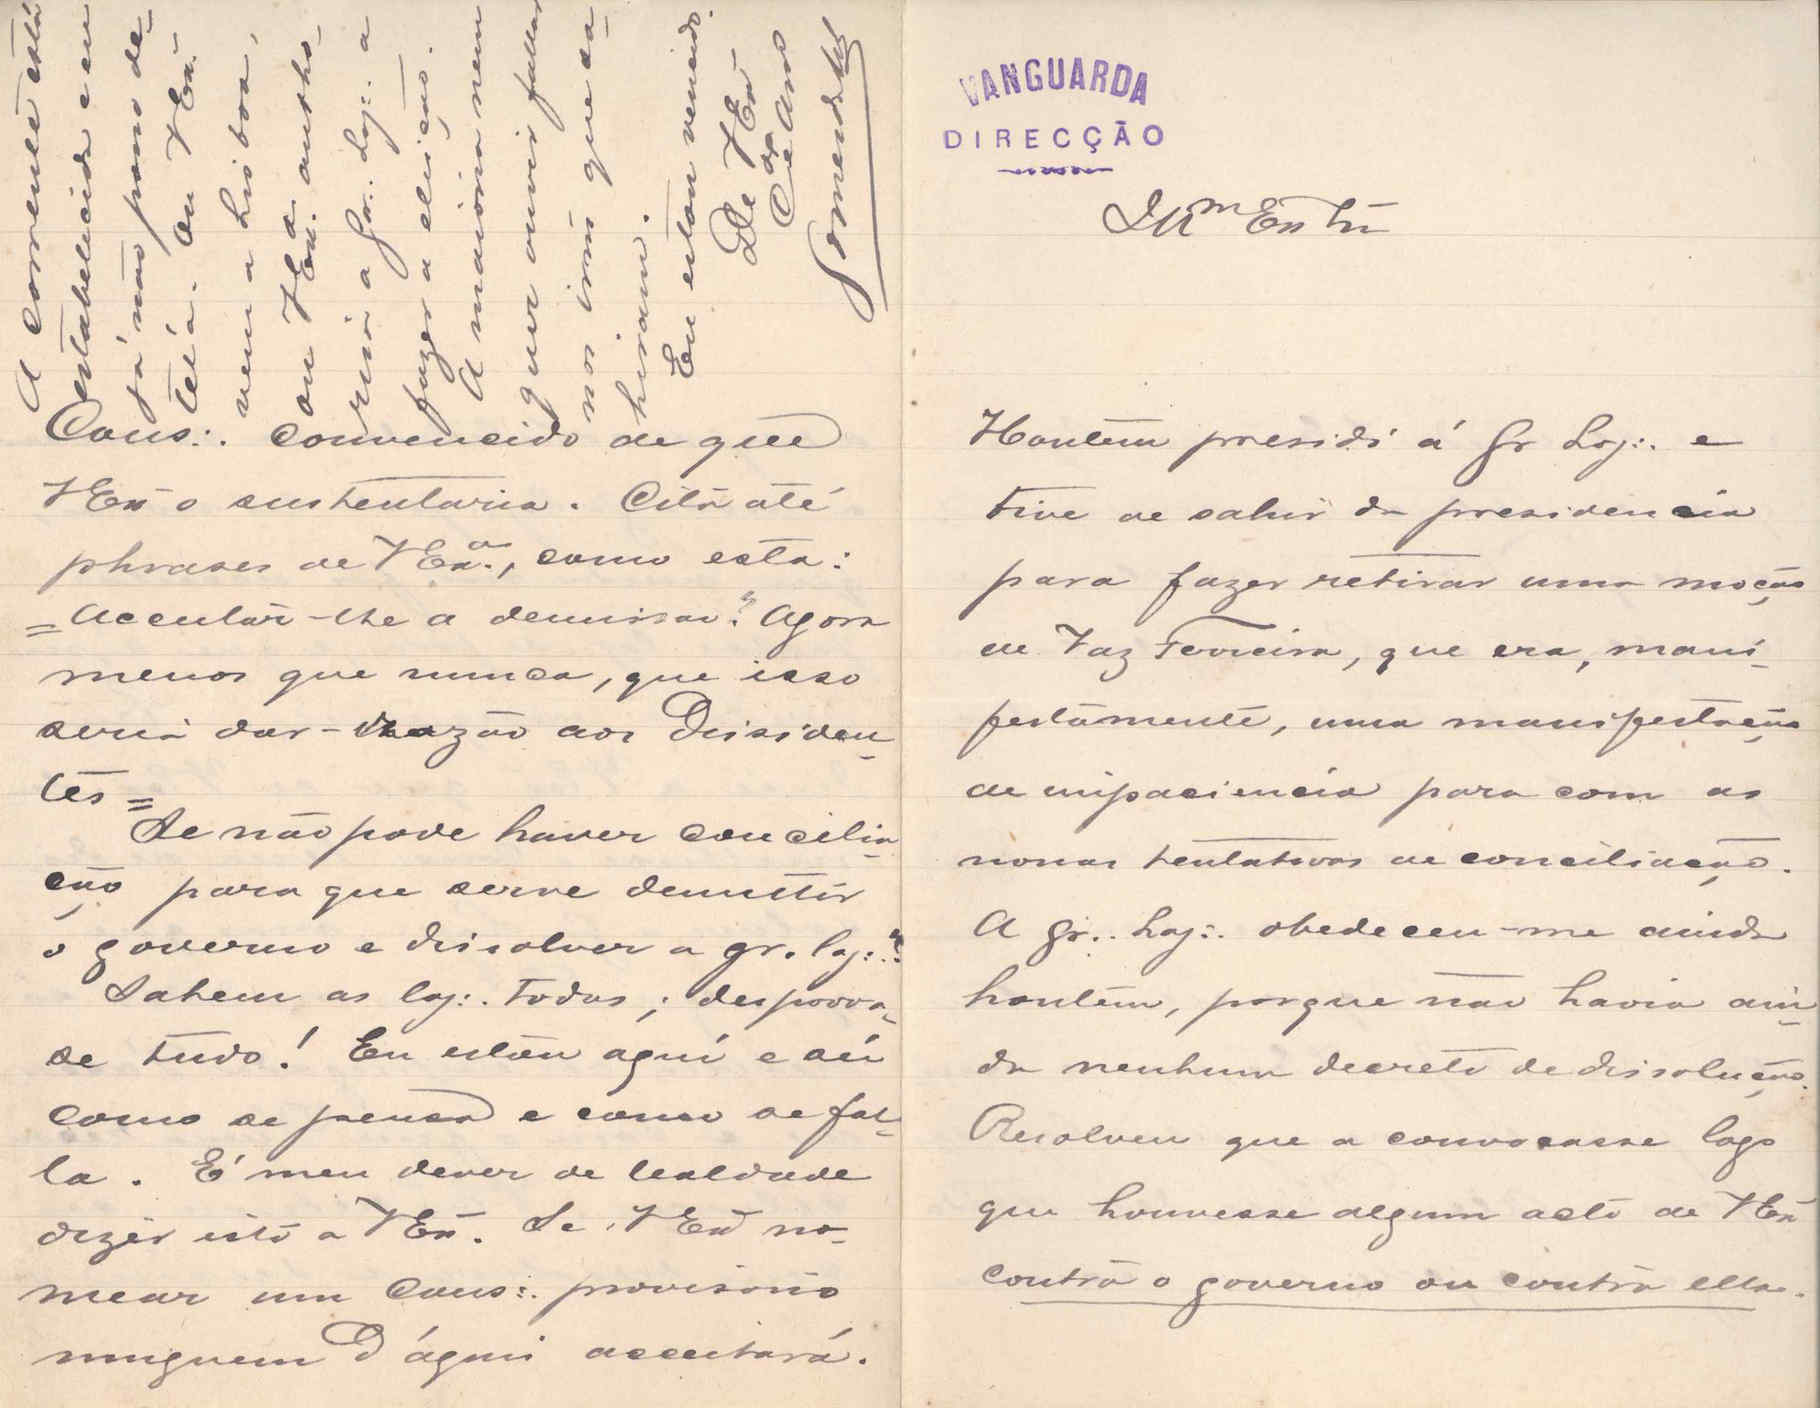 VANGUARDA
DIRECÇÃO
Illm Exm Snr
Hontem presidi á Gr Loj∴ e
tive de sahir da presidencia
para fazer retirar uma moção
de Vaz Ferreira, que era, mani-
festamente, uma manifestação
de impaciencia para com as
novas tentativas de conciliação.
A Gr∴ Loj∴ obedeceu-me ainda
hontem, porque não havia ain-
da nenhum decreto de dissolução.
Resolveu que a convocasse logo
que houvesse algum acto de VExa
contra o governo ou contra ella.
Cons∴ convencido de que
VExa o sustentaria. Cita até
phrases de VExa., como esta:
= Acceitar-lhe a demissão? Agora
menos que nunca, que isso
seria dar razão aos Dissiden-
tes =
Se não pode haver concilia-
ção para que serve demittir
o governo e dissolver a gr. loj∴?
Sahem as loj∴ todas; despovoa-
se tudo! Eu estou aqui e sei
como se pensa e como se fal-
la. É meu dever de lealdade
dizer isto a VExa. Se VExa no-
mear um Cons∴ provisorio
ninguem d'aqui acceitará.
A corrente está
estabelecida e eu
já não posso de-
tel-a. Ou VExa.
vem a Lisboa,
ou VExa. autho-
risa a Gr. Loj∴ a
fazer a eleição.
A maioria nem
quer ouvir fallar
nos irms que sa-
hiram.
Eu estou vencido.
De VExa
Cdo Amo
Gomes da Silva